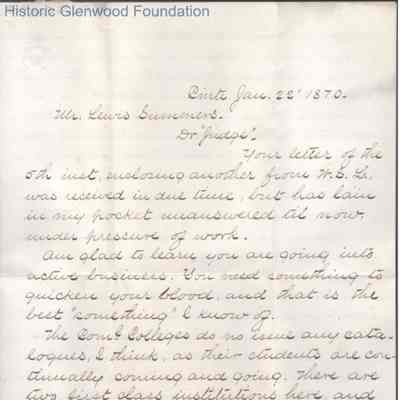 Historic Glenwood Foundation
Cint. Jan. 22' 1870.
Mr. Lewis Summers.
Dr "Judge".
Your letter of the
5th inst, enclosing another from W. S. L.
was received in due time, but has lain
in my pocket unanswered til now,
under pressure of work.
Am glad to learn you are going into
active business. You need something to
quicken your blood, and that is the
best "something" I know of.
The Coml Colleges do no issue any cata-
logues, I think, as their students are con-
tinually coming and going. There are
two first class institutions here and